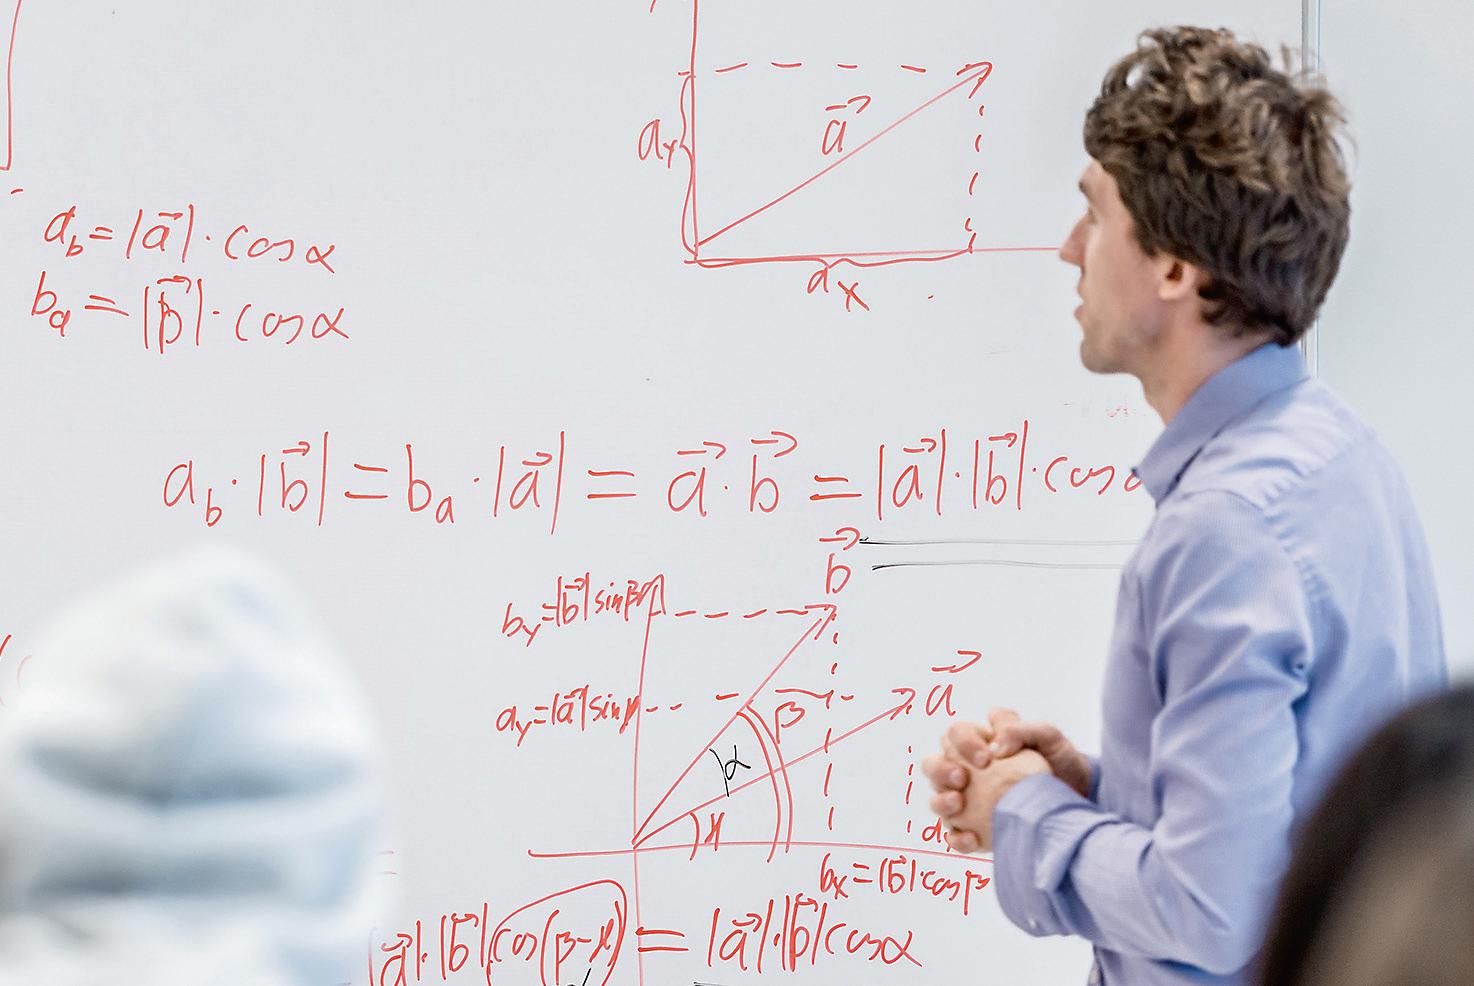 a⃗
a_y
a_x
a_b = |a⃗| · cos α
b_a = |b⃗| · cos α
a_b · |b⃗| = b_a · |a⃗| = a⃗ · b⃗ = |a⃗| · |b⃗| · cos
b⃗
b_y = |b⃗| sin β
a⃗
a_y = |a⃗| sin
β
α
b_x = |b⃗| · cos β
|a⃗| · |b⃗| cos(β - γ) = |a⃗| · |b⃗| cos α